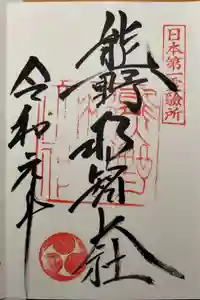 日本第一霊験所
熊野那智大社
令和元年